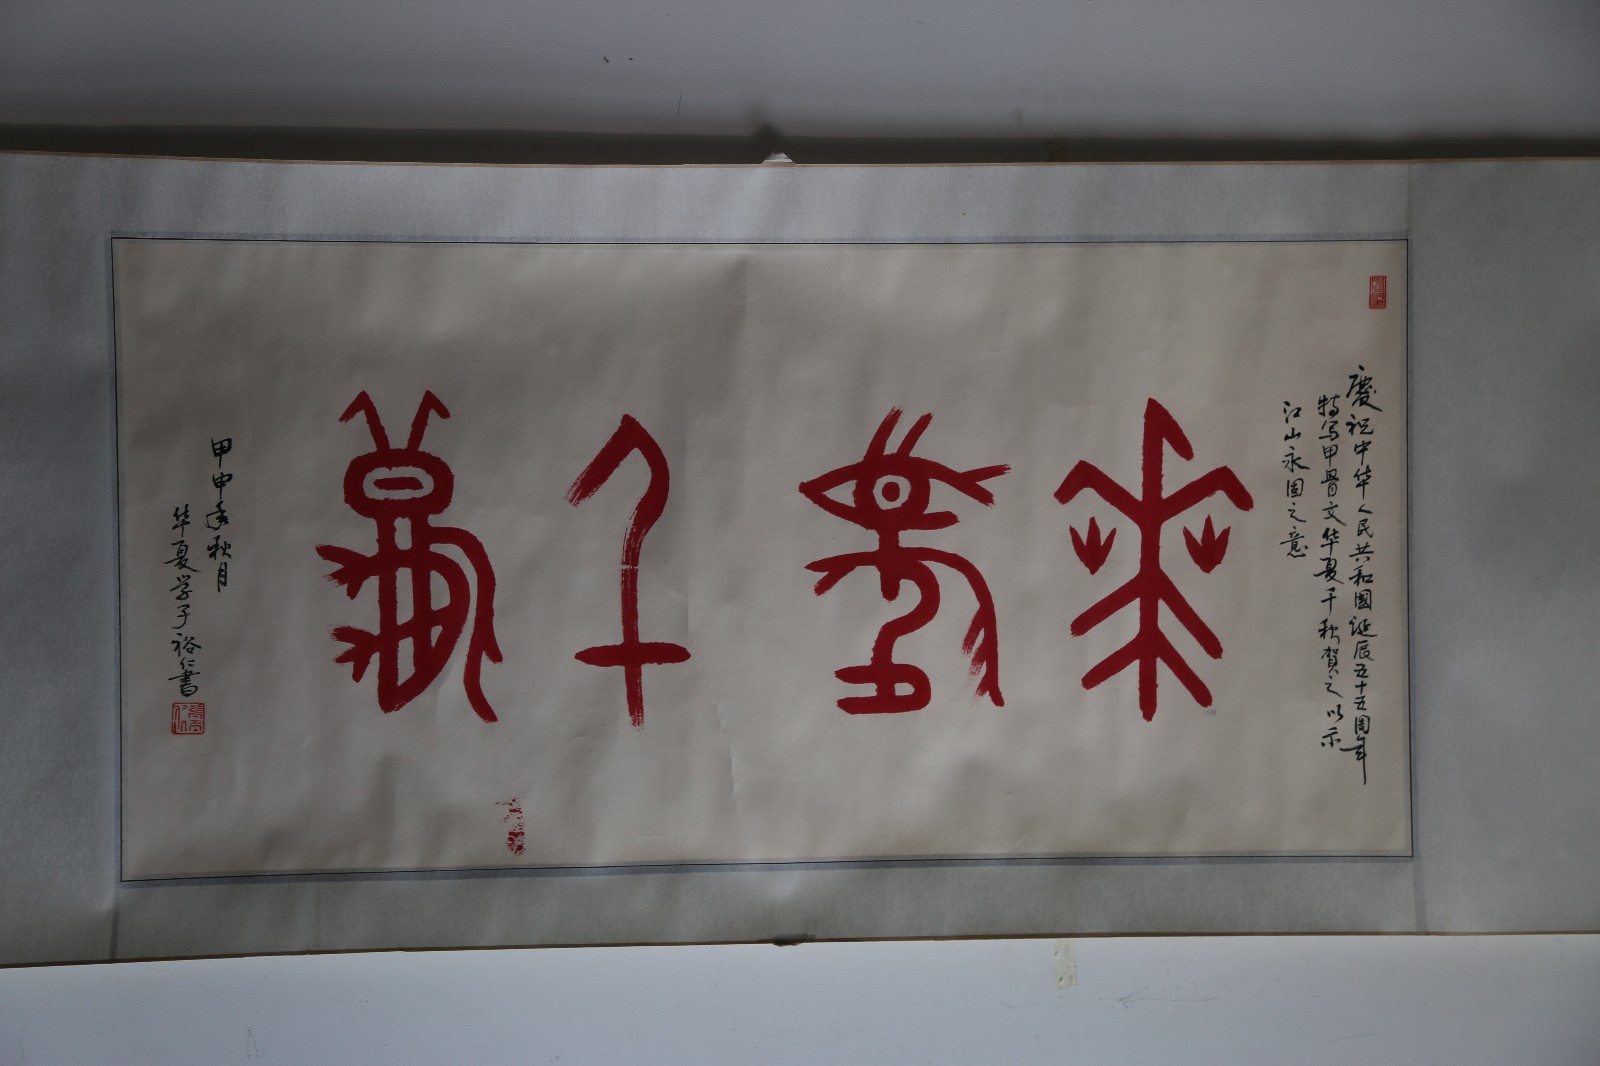 慶祝中华人民共和國诞辰五十五周年
特写甲骨文华夏千秋贺之以示
江山永固之意
华夏千秋
甲申年秋月
华夏学子裕仁書